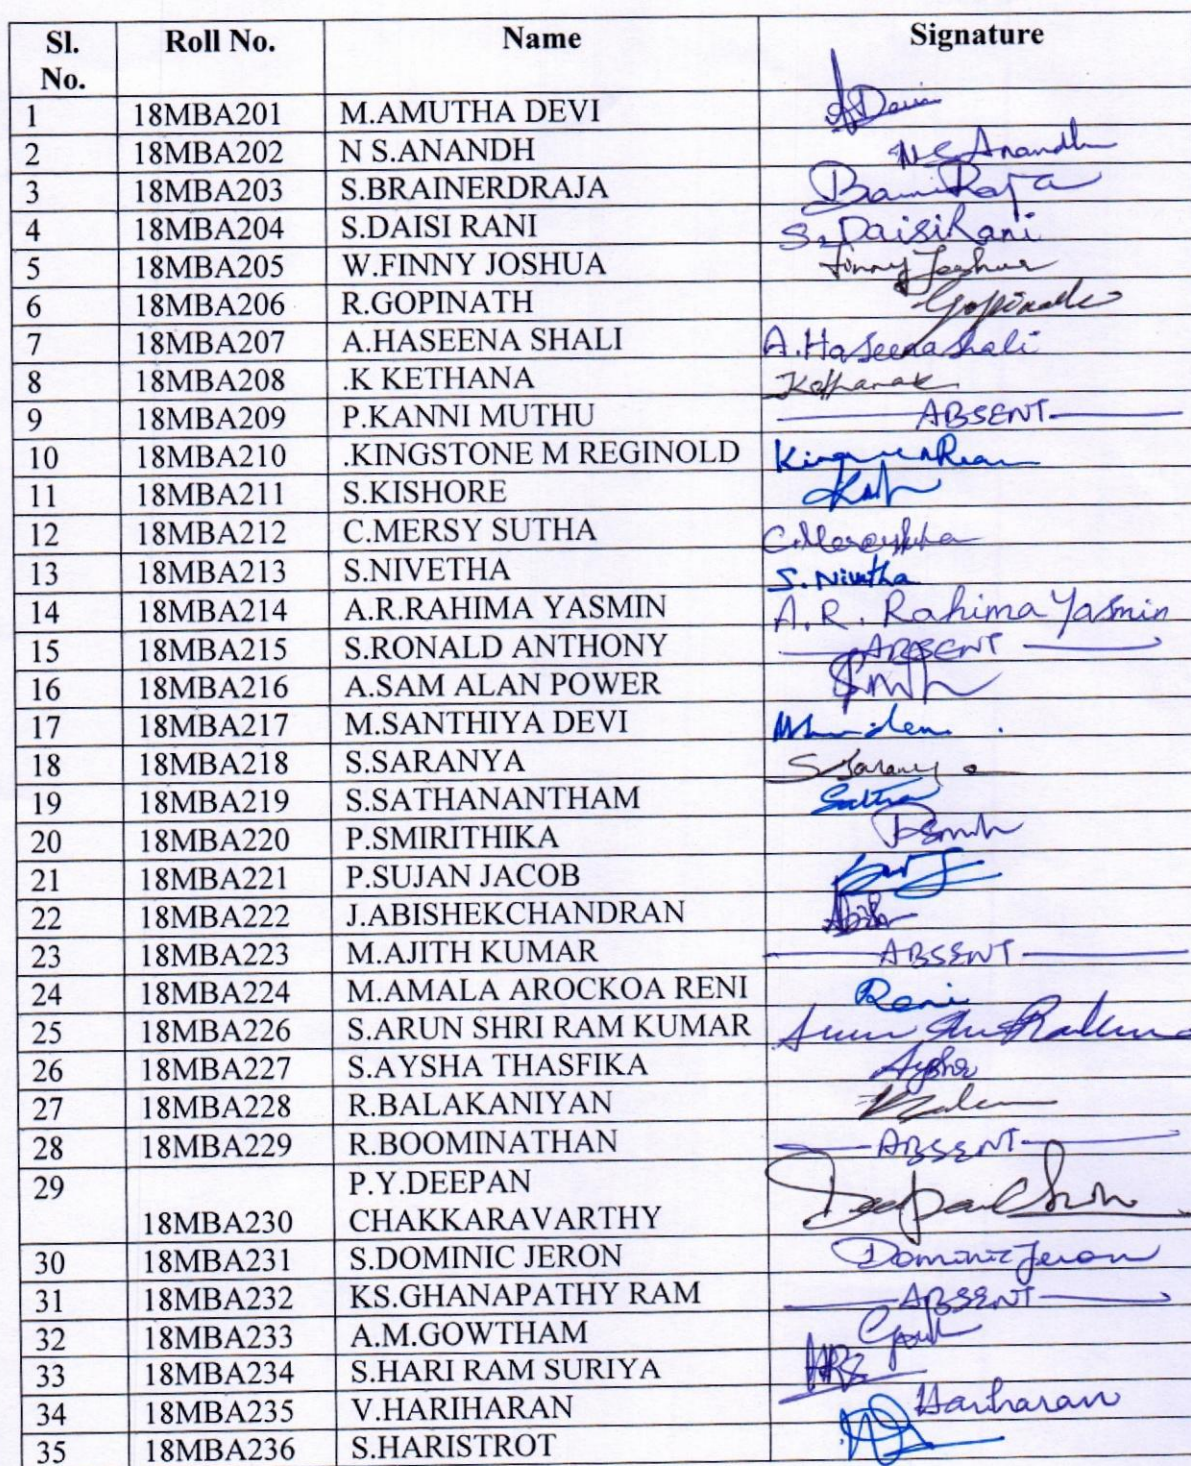 Sl. No. Roll No. Name Signature
1 18MBA201 M.AMUTHA DEVI A Devi
2 18MBA202 N S.ANANDH N.S Anandh
3 18MBA203 S.BRAINERDRAJA
4 18MBA204 S.DAISI RANI S. DaisiRani
5 18MBA205 W.FINNY JOSHUA Finny Joshua
6 18MBA206 R.GOPINATH Gopinath
7 18MBA207 A.HASEENA SHALI A.Haseena shali
8 18MBA208 .K KETHANA
9 18MBA209 P.KANNI MUTHU ABSENT
10 18MBA210 .KINGSTONE M REGINOLD
11 18MBA211 S.KISHORE
12 18MBA212 C.MERSY SUTHA
13 18MBA213 S.NIVETHA S. Nivetha
14 18MBA214 A.R.RAHIMA YASMIN A. R. Rahima Yasmin
15 18MBA215 S.RONALD ANTHONY ABSENT
16 18MBA216 A.SAM ALAN POWER
17 18MBA217 M.SANTHIYA DEVI
18 18MBA218 S.SARANYA S Saranya
19 18MBA219 S.SATHANANTHAM
20 18MBA220 P.SMIRITHIKA
21 18MBA221 P.SUJAN JACOB
22 18MBA222 J.ABISHEKCHANDRAN
23 18MBA223 M.AJITH KUMAR ABSENT
24 18MBA224 M.AMALA AROCKOA RENI Reni
25 18MBA226 S.ARUN SHRI RAM KUMAR
26 18MBA227 S.AYSHA THASFIKA Aysha
27 18MBA228 R.BALAKANIYAN
28 18MBA229 R.BOOMINATHAN ABSENT
29 P.Y.DEEPAN
18MBA230 CHAKKARAVARTHY
30 18MBA231 S.DOMINIC JERON Dominic Jeron
31 18MBA232 KS.GHANAPATHY RAM ABSENT
32 18MBA233 A.M.GOWTHAM
33 18MBA234 S.HARI RAM SURIYA
34 18MBA235 V.HARIHARAN Hariharan
35 18MBA236 S.HARISTROT